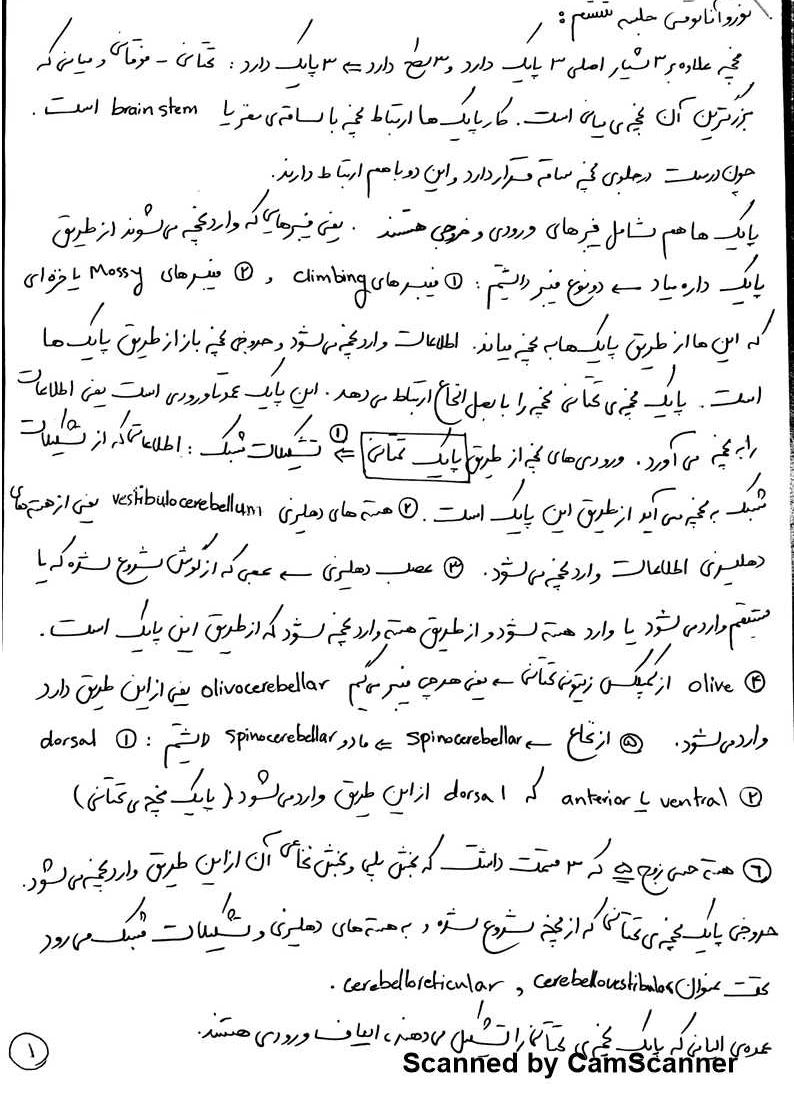 نوروآناتومی جلسه ششم :
مخچه علاوه بر ۳ شیار اصلی ۳ پایک دارد و ۳ سطح دارد ⇐ ۳ پایک دارد : تحتانی - فوقانی و میانی که
بزرگترین آن مخچه ی میانی است . کار پایک ها ارتباط مخچه با ساقه ی مغز یا brain stem است .
چون درست در جلوی مخچه ساقه قرار دارد و این دو باهم ارتباط دارند.
پایک ها هم شامل فیبرهای ورودی و خروجی هستند . یعنی فیبرهایی که وارد مخچه می شوند از طریق
پایک داره میاد ← دو نوع فیبر داشتیم : ① فیبرهای climbing و ② فیبرهای Mossy یا خزه ای
که این ها از طریق پایک ها به مخچه میاند. اطلاعات وارد مخچه می شود و خروجی مخچه باز از طریق پایک ها
است . پایک مخچه ی تحتانی مخچه را با بصل النخاع ارتباط می دهد . این پایک عمدتا ورودی است یعنی اطلاعات
را به مخچه می آورد . ورودی های مخچه از طریق پایک تحتانی ⇐ ① تشکیلات مشبک : اطلاعاتی که از تشکیلات
مشبک به مخچه می آید از طریق این پایک است . ② هسته های دهلیزی vestibulocerebellum یعنی از هسته های
دهلیزی اطلاعات وارد مخچه می شود. ③ عصب دهلیزی ← عصبی که از گوش شروع شده که یا
مستقیم وارد می شود یا وارد هسته شود و از طریق هسته وارد مخچه شود که از طریق این پایک است .
④ olive از کمپلکس زیتونی تحتانی ← یعنی هرچی فیبر می گیم olivocerebellar یعنی از این طریق دارد
وارد می شود. ⑤ از نخاع ← spinocerebellar ⇐ ما دو spinocerebellar داشتیم : ① dorsal
② ventral یا anterior که dorsal از این طریق وارد می شود (پایک مخچه ی تحتانی)
⑥ هسته حسی زوج ۵ که ۳ قسمت داشت که بخش پلی و بخش نخاعی آن از این طریق وارد مخچه می شود.
خروجی پایک مخچه ی تحتانی که از مخچه شروع شده و به هسته های دهلیزی و تشکیلات مشبک می رود
تحت عنوان cerebellovestibular و cerebelloreticular .
عمده ی الیافی که پایک مخچه ی تحتانی را تشکیل می دهند، الیاف ورودی هستند.
۱
Scanned by CamScanner